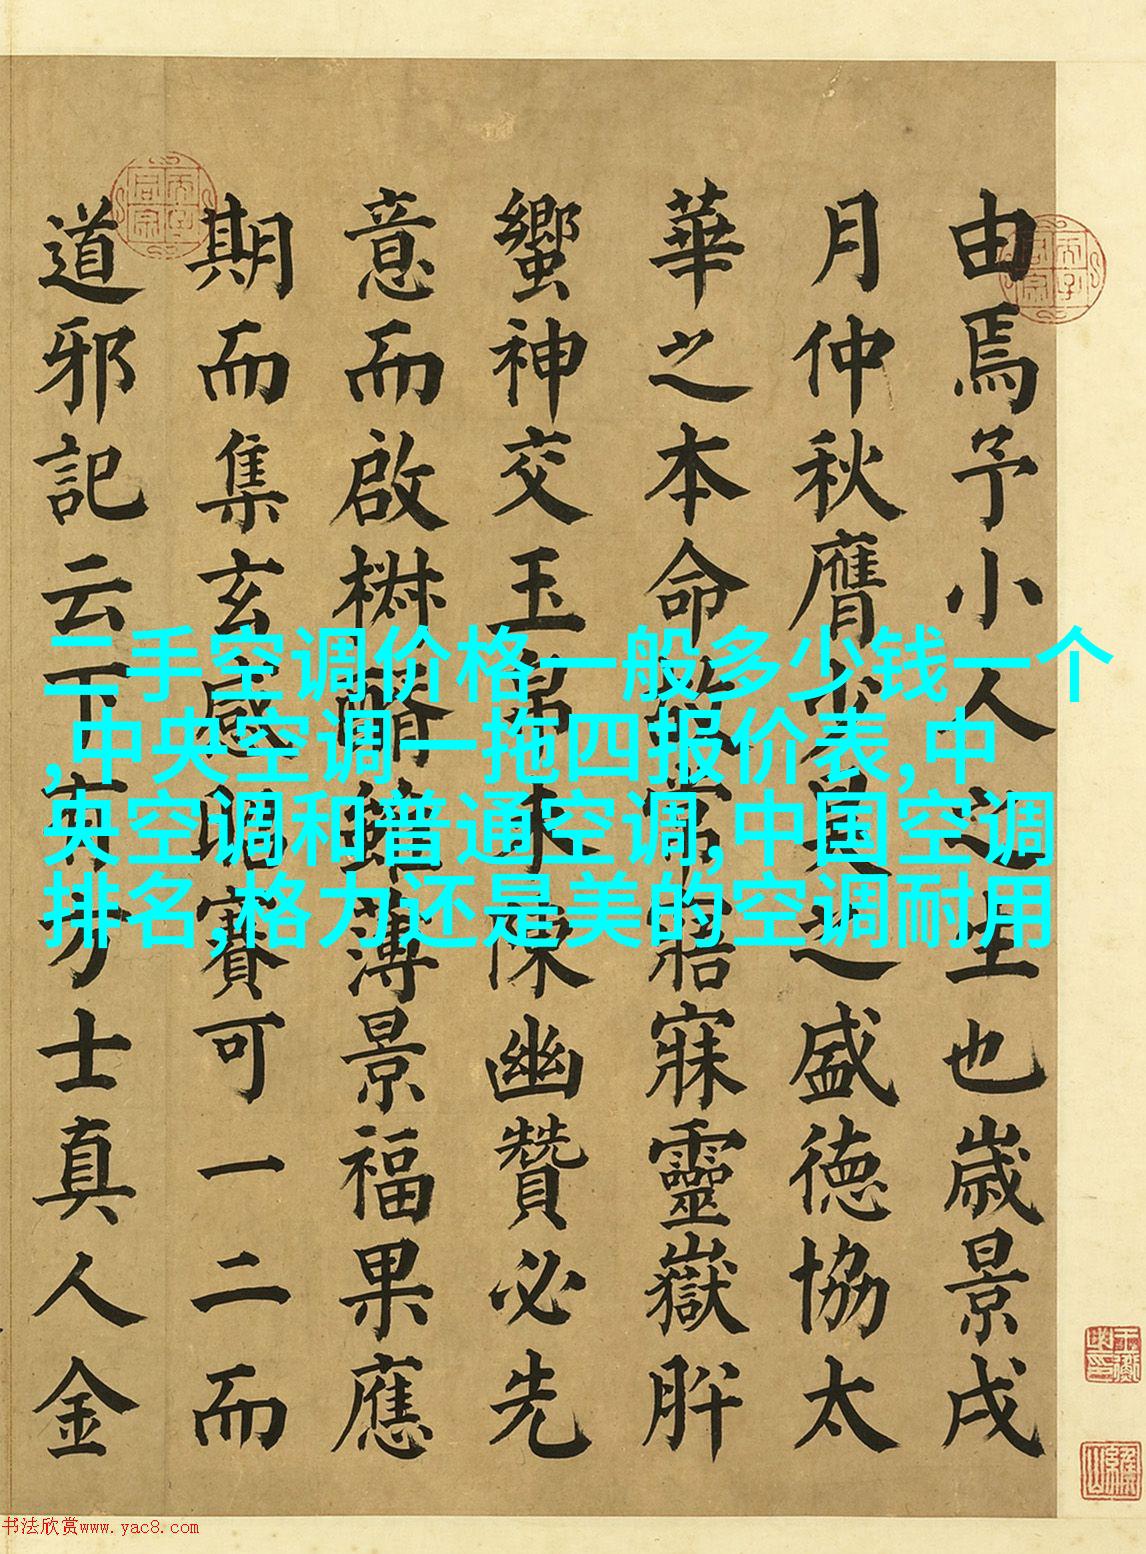 由焉予小人之生也歲景戌
月仲秋膺少昊之盛德協太
華之本命寤寐靈嶽肸
蠁神交玉帛未陳幽贊必先
意而啟椒醑雖薄景福果應
期而集玄感昭賽可一二而
道邪記云下有方士真人金
二手空调价格一般多少钱一个
,中央空调一拖四报价表,中
央空调和普通空调,中国空调
排名,格力还是美的空调耐用
书法欣赏www.yac8.com